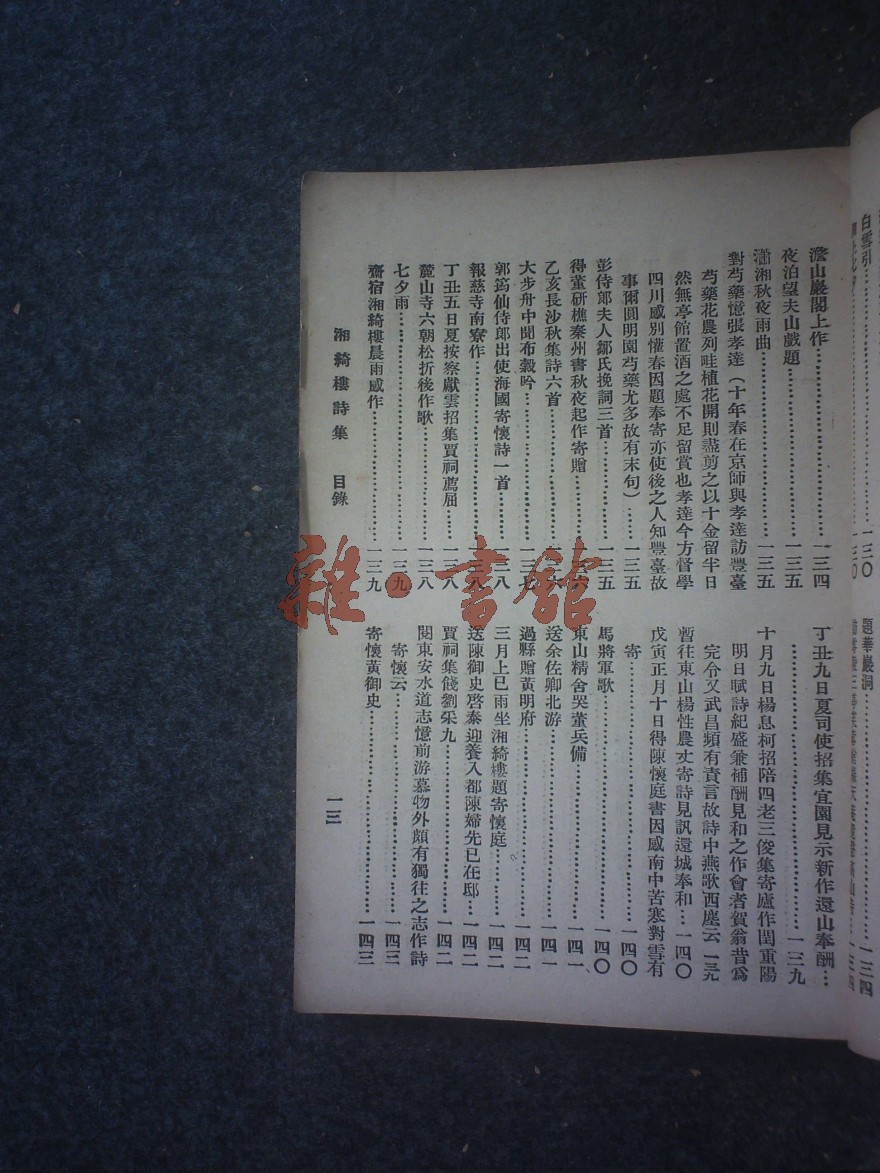 白雲引……一三〇
題華巖洞……一三四
澹山巖閣上作……一三四
夜泊望夫山戲題……一三五
瀟湘秋夜雨曲……一三五
對芍藥憶張孝達(十年春在京師與孝達訪豐臺
芍藥花農列畦植花開則盡剪之以十金留半日
然無亭館置酒之處不足留賞也孝達今方督學
四川感別懽春因題奉寄亦使後之人知豐臺故
事爾圓明園芍藥尤多故有末句)……一三五
彭侍郎夫人鄒氏挽詞三首……一三五
得董研樵秦州書秋夜起作寄贈……一三六
乙亥長沙秋集詩六首……一三六
大步舟中聞布穀吟……一三七
郭筠仙侍郎出使海國寄懷詩一首……一三八
報慈寺南寮作……一三八
丁丑五日夏按察獻雲招集賈祠薦屈……一三八
麓山寺六朝松折後作歌……一三八
七夕雨……一三九
齋宿湘綺樓晨雨感作……一三九
丁丑九日夏司使招集宜園見示新作還山奉酬…
……一三九
十月九日楊息柯招陪四老三俊集寄廬作閏重陽
明日賦詩紀盛兼補酬見和之作會者賀翁昔爲
完令又武昌頻有責言故詩中燕歌西塵云 一三九
暫往東山楊性農丈寄詩見訊還城奉和…一四〇
戊寅正月十日得陳懷庭書因感南中苦寒對雪有
寄……一四〇
馬將軍歌……一四〇
東山精舍哭董兵備……一四一
送余佐卿北游……一四一
過縣贈黃明府……一四二
三月上巳雨坐湘綺樓題寄懷庭……一四二
送陳御史啓泰迎養入都陳婦先已在邸…一四二
賈祠集餞劉采九……一四二
閱東安水道志憶前游慕物外頗有獨往之志作詩
寄懷云……一四三
寄懷黃御史……一四三
湘綺樓詩集 目錄
一三
雜·書館